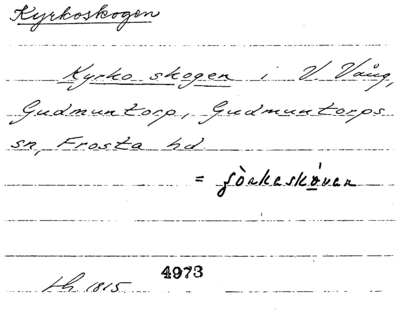 Kyrkoskogen
Kyrko skogen i V Vång,
Gudmuntorp, Gudmuntorps
sn, Frosta hd
= ʃòrkeskóven
Lh 1815 4973